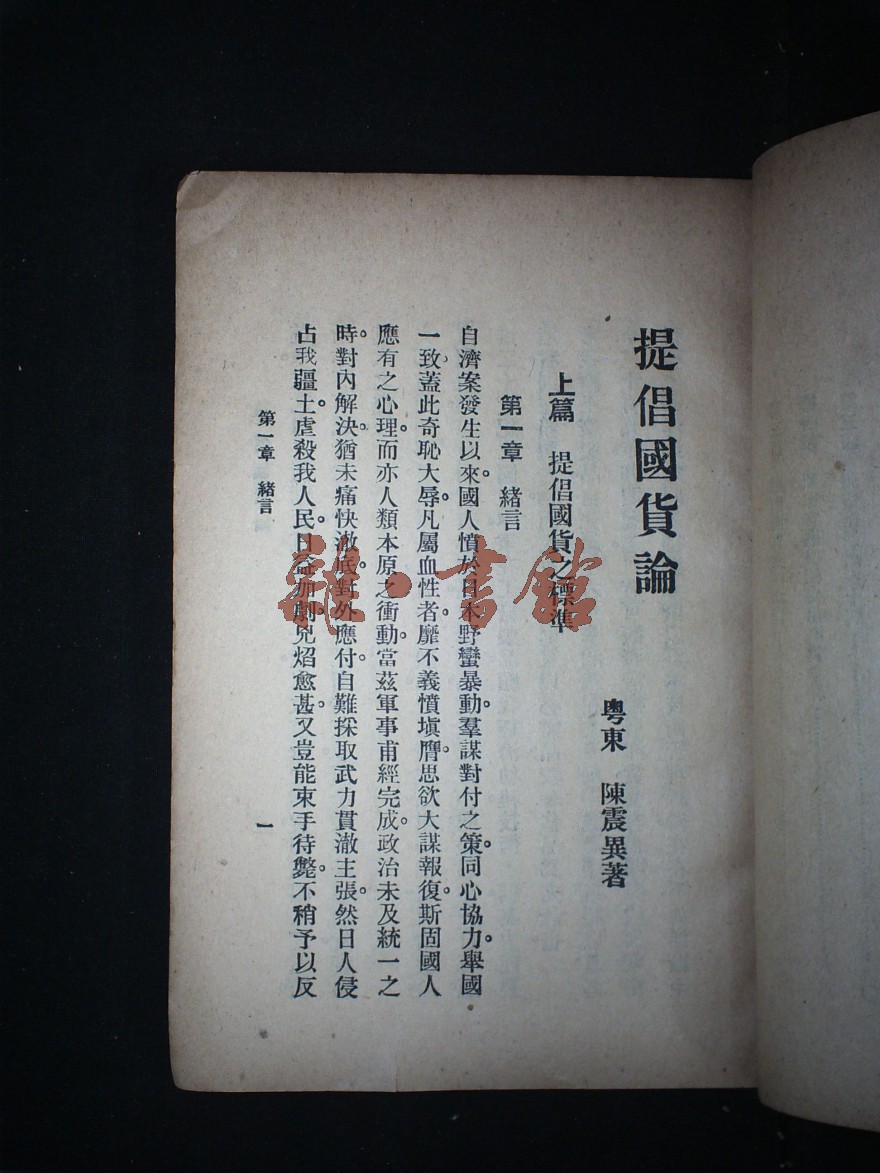 提倡國貨論
粵東　陳震異著
上篇　提倡國貨之標準
第一章　緒言
自濟案發生以來。國人憤於日本野蠻暴動。羣謀對付之策。同心協力。舉國
一致蓋此奇恥大辱。凡屬血性者。靡不義憤塡膺。思欲大謀報復。斯固國人
應有之心理。而亦人類本原之衝動。當茲軍事甫經完成。政治未及統一之
時。對內解決。猶未痛快澈底。對外應付。自難採取武力貫澈主張。然日人侵
占我疆土。虐殺我人民。日益加劇。兇焰愈甚。又豈能束手待斃。不稍予以反
第一章　緒言
一
雜·書館